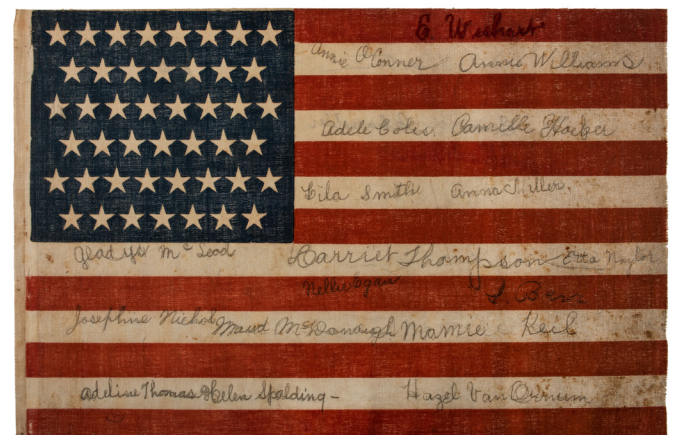 E. Wishart
Annie O'Conner Annie Williams.
Adele Coles Camille Hacker
Lila Smith Anna Miller.
Gladys McLeod Harriet Thompson Etta Naylor
Nellie Egan
Josephine Nichols Maud McDonough Mamie Keil
Adeline Thomas Helen Spalding - Hazel Van Ornum